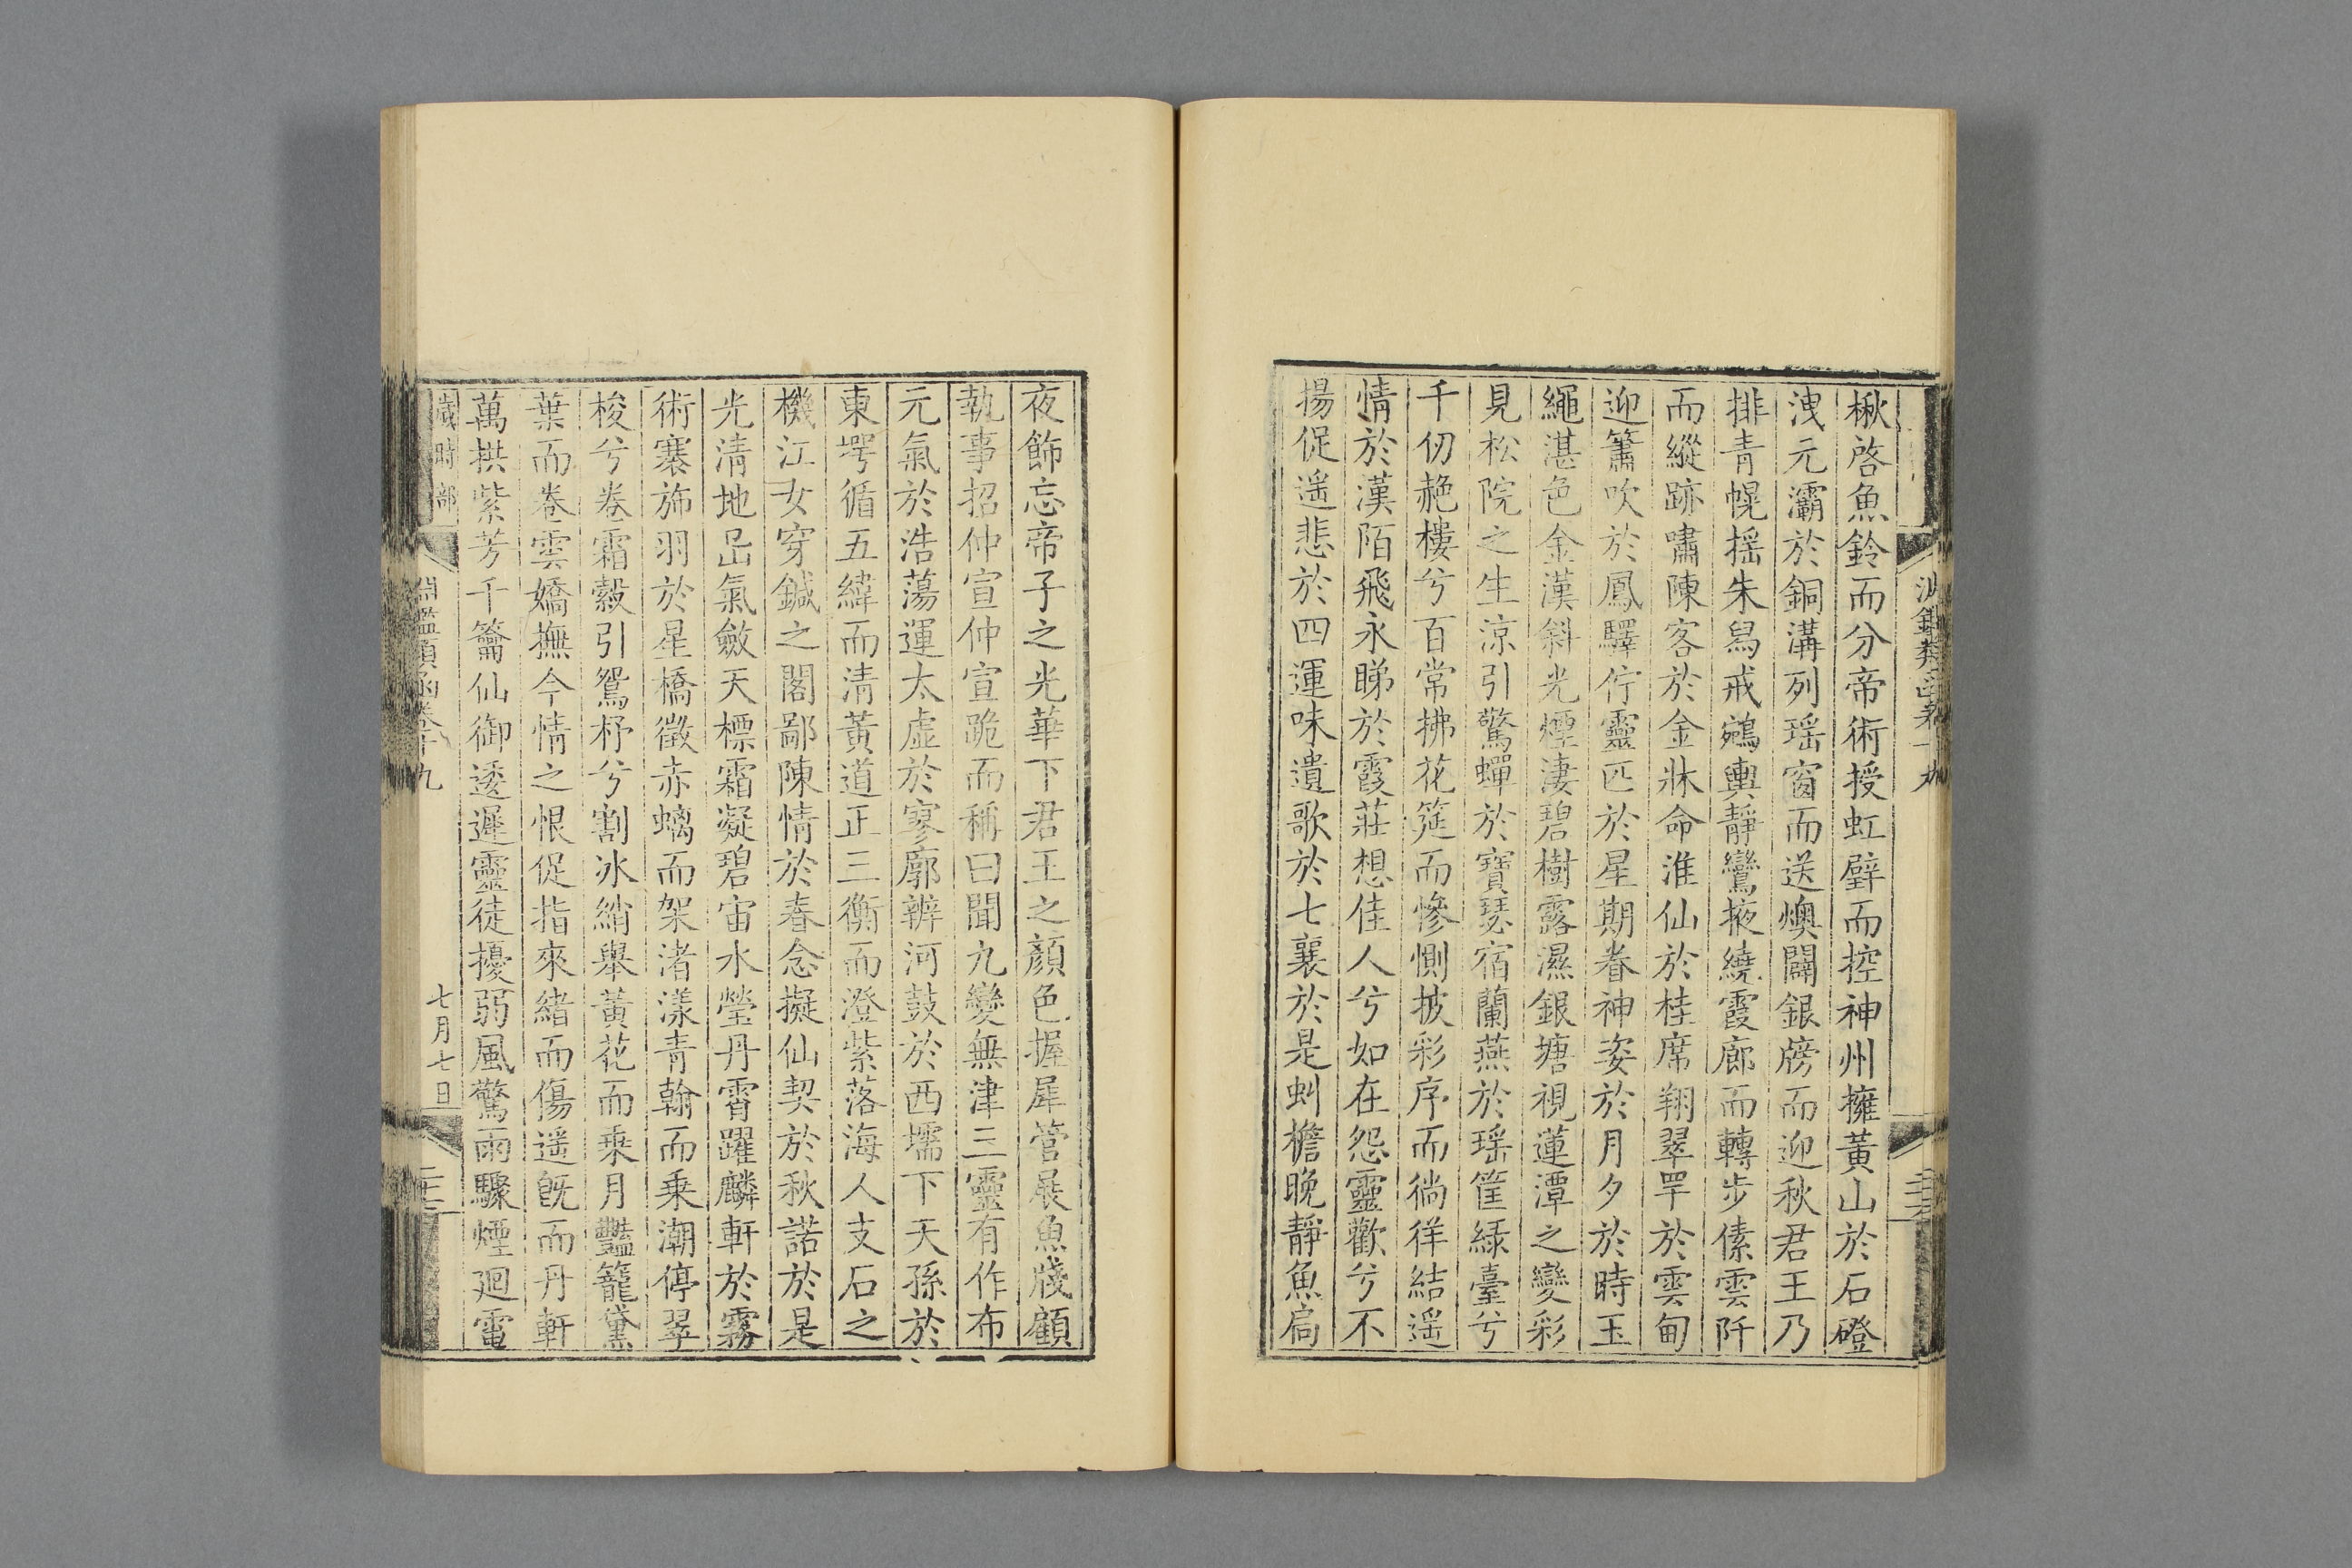 楸啓魚鈴而分帝術授虹璧而控神州擁黃山於石磴
洩元灞於銅溝列瑶窗而送燠闢銀牓而迎秋君王乃
排青幌揺朱舄戒鵷輿靜鸞掖繞霞廊而轉步傃雲阡
而縱跡嘯陳客於金牀命淮仙於桂席翔翠罕於雲甸
迎簫吹於鳳驛佇靈匹於星期眷神姿於月夕於時玉
繩湛色金漢斜光煙淒碧樹露濕銀塘視蓮潭之變彩
見松院之生涼引驚蟬於寶瑟宿蘭燕於瑶筐緑臺兮
千仞赩樓兮百常拂花筵而慘惻披彩序而徜徉結遥
情於漢陌飛永睇於霞莊想佳人兮如在怨靈歡兮不
揚促遥悲於四運味遺歌於七襄於是虯檐晚靜魚扃
夜飾忘帝子之光華下君王之顏色握犀管展魚牋顧
執事招仲宣仲宣跪而稱曰聞九變無津三靈有作布
元氣於浩蕩運太虛於寥廓辨河鼓於西壖下天孫於
東堮循五緯而清黃道正三衡而澄紫落海人支石之
機江女穿鍼之閣鄙陳情於春念擬仙契於秋諾於是
光清地岊氣斂天標霜凝碧宙水瑩丹霄躍麟軒於霧
術褰旆羽於星橋徵赤螭而架渚漾青翰而乘潮停翠
梭兮卷霜縠引鴛杼兮割冰綃舉黃花而乘月豔籠黛
葉而卷雲嬌撫今情之恨促指來緒而傷遥旣而丹軒
萬拱紫芳千籥仙御逶遲靈徒擾弱風驚雨驟煙廻電
歲時部
淵鑑類函卷十九
七月七日